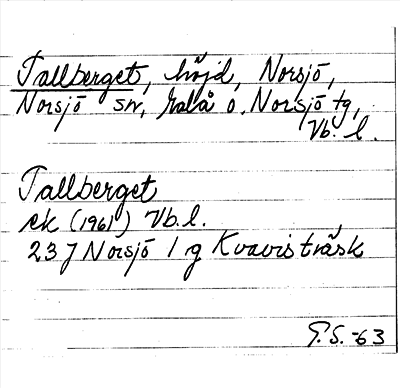 Tallberget, höjd, Norsjö,
Norsjö sn, Malå o. Norsjö tg,
Vb. l.
Tallberget
ek (1961) Vb. l.
23 J Norsjö 1 g Kvavisträsk
G.S. -63